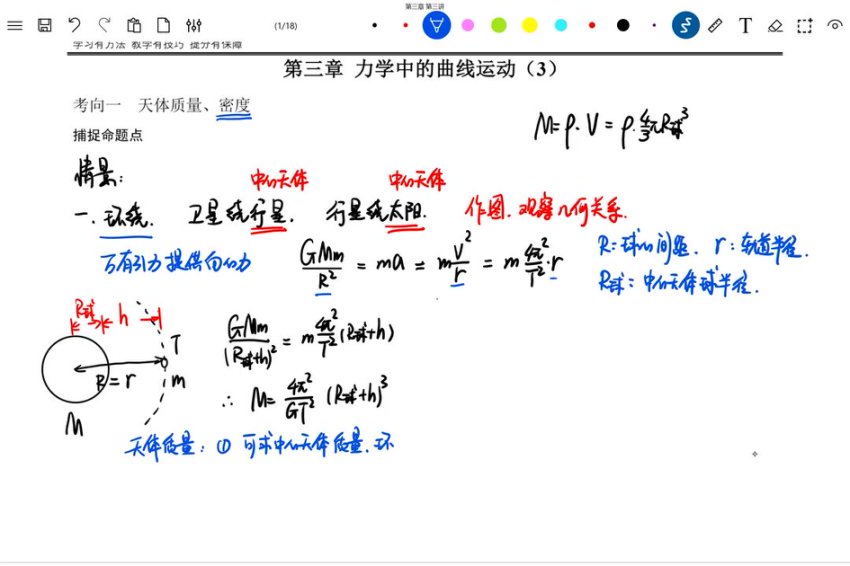 第三章 第三讲
(1/18)
学习有方法 教学有技巧 提分有保障
第三章 力学中的曲线运动（3）
考向一 天体质量、密度
M=ρ·V=ρ·4/3πR球³
捕捉命题点
情景：
中心天体 中心天体
一.环绕. 卫星绕行星. 行星绕太阳. 作图.观察几何关系.
万有引力提供向心力 GMm/R² = ma = m v²/r = m 4π²/T²·r
R=球心间距. r：轨道半径.
R球：中心天体球半径.
R球 h
GMm/(R球+h)² = m 4π²/T² (R球+h)
T
R=r m
∴ M= 4π²/GT² (R球+h)³
M
天体质量：① 可求中心天体质量.环